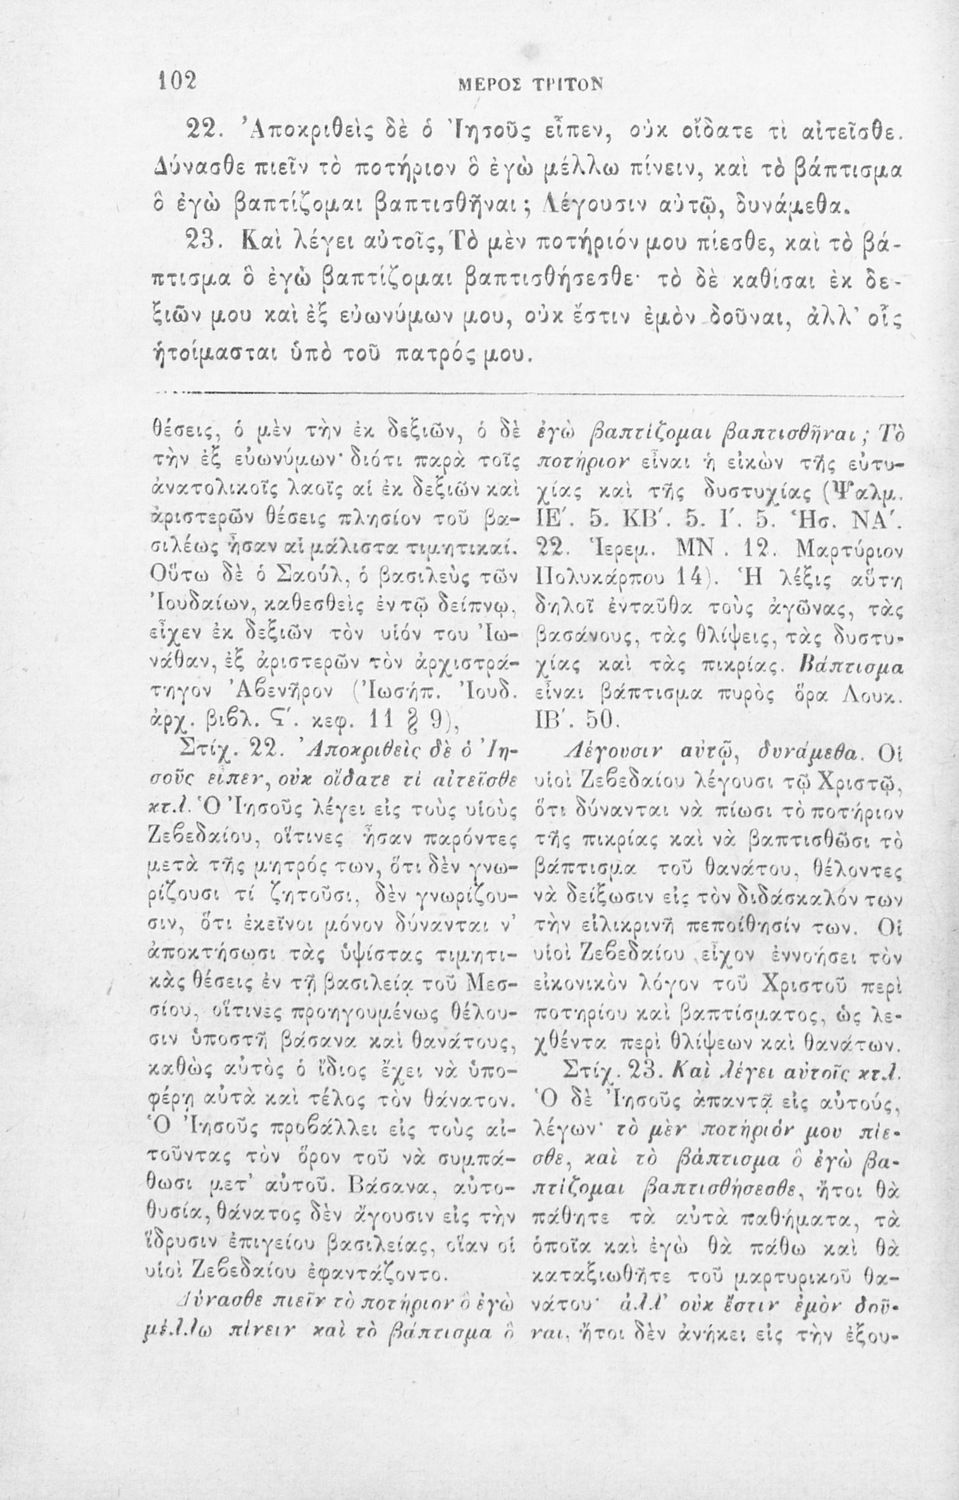 102
ΜΕΡΟΣ ΤΡΙΤΟΝ
22. Ἀποκριθεὶς δὲ ὁ Ἰησοῦς εἶπεν, οὐκ οἴδατε τὶ αἰτεῖσθε.
Δύνασθε πιεῖν τὸ ποτήριον ὃ ἐγὼ μέλλω πίνειν, καὶ τὸ βάπτισμα
ὃ ἐγὼ βαπτίζομαι βαπτισθῆναι; Λέγουσιν αὐτῷ, δυνάμεθα.
23. Καὶ λέγει αὐτοῖς, Τὸ μὲν ποτήριόν μου πίεσθε, καὶ τὸ βά-
πτισμα ὃ ἐγὼ βαπτίζομαι βαπτισθήσεσθε· τὸ δὲ καθίσαι ἐκ δε-
ξιῶν μου καὶ ἐξ εὐωνύμων μου, οὐκ ἔστιν ἐμὸν δοῦναι, ἀλλ' οἷς
ἡτοίμασται ὑπὸ τοῦ πατρός μου.
θέσεις, ὁ μὲν τὴν ἐκ δεξιῶν, ὁ δὲ
τὴν ἐξ εὐωνύμων· διότι παρὰ τοῖς
ἀνατολικοῖς λαοῖς αἱ ἐκ δεξιῶν καὶ
ἀριστερῶν θέσεις πλησίον τοῦ βα-
σιλέως ἦσαν αἱ μάλιστα τιμητικαί.
Οὕτω δὲ ὁ Σαούλ, ὁ βασιλεὺς τῶν
Ἰουδαίων, καθεσθεὶς ἐν τῷ δείπνῳ,
εἶχεν ἐκ δεξιῶν τὸν υἱόν του Ἰω-
νάθαν, ἐξ ἀριστερῶν τὸν ἀρχιστρά-
τηγον Ἀβενῆρον (Ἰωσήπ. Ἰουδ.
ἀρχ. βιβλ. Ϛ΄. κεφ. 11 § 9),
Στίχ. 22. Ἀποκριθεὶς δὲ ὁ Ἰη-
σοῦς εἶπεν, οὐκ οἴδατε τί αἰτεῖσθε
κτλ. Ὁ Ἰησοῦς λέγει εἰς τοὺς υἱοὺς
Ζεβεδαίου, οἵτινες ἦσαν παρόντες
μετὰ τῆς μητρός των, ὅτι δὲν γνω-
ρίζουσι τί ζητοῦσι, δὲν γνωρίζου-
σιν, ὅτι ἐκεῖνοι μόνον δύνανται ν'
ἀποκτήσωσι τὰς ὑψίστας τιμητι-
κὰς θέσεις ἐν τῇ βασιλείᾳ τοῦ Μεσ-
σίου, οἵτινες προηγουμένως θέλου-
σιν ὑποστῆ βάσανα καὶ θανάτους,
καθὼς αὐτὸς ὁ ἴδιος ἔχει νὰ ὑπο-
φέρῃ αὐτὰ καὶ τέλος τὸν θάνατον.
Ὁ Ἰησοῦς προβάλλει εἰς τοὺς αἰ-
τοῦντας τὸν ὅρον τοῦ νὰ συμπά-
θωσι μετ' αὐτοῦ. Βάσανα, αὐτο-
θυσία, θάνατος δὲν ἄγουσιν εἰς τὴν
ἵδρυσιν ἐπιγείου βασιλείας, οἵαν οἱ
υἱοὶ Ζεβεδαίου ἐφαντάζοντο.
Δύνασθε πιεῖν τὸ ποτήριον ὃ ἐγὼ
μέλλω πίνειν καὶ τὸ βάπτισμα ὃ
ἐγὼ βαπτίζομαι βαπτισθῆναι; Τὸ
ποτήριον εἶναι ἡ εἰκὼν τῆς εὐτυ-
χίας καὶ τῆς δυστυχίας (Ψαλμ.
ΙΕ΄. 5. ΚΒ΄. 5. Ι΄. 5. Ἡσ. ΝΑ΄.
22. Ἱερεμ. ΜΝ. 12. Μαρτύριον
Πολυκάρπου 14). Ἡ λέξις αὕτη
δηλοῖ ἐνταῦθα τοὺς ἀγῶνας, τὰς
βασάνους, τὰς θλίψεις, τὰς δυστυ-
χίας καὶ τὰς πικρίας. Βάπτισμα
εἶναι βάπτισμα πυρὸς ὅρα Λουκ.
ΙΒ΄. 50.
Λέγουσιν αὐτῷ, δυνάμεθα. Οἱ
υἱοὶ Ζεβεδαίου λέγουσι τῷ Χριστῷ,
ὅτι δύνανται νὰ πίωσι τὸ ποτήριον
τῆς πικρίας καὶ νὰ βαπτισθῶσι τὸ
βάπτισμα τοῦ θανάτου, θέλοντες
νὰ δείξωσιν εἰς τὸν διδάσκαλόν των
τὴν εἰλικρινῆ πεποίθησίν των. Οἱ
υἱοὶ Ζεβεδαίου εἶχον ἐννοήσει τὸν
εἰκονικὸν λόγον τοῦ Χριστοῦ περὶ
ποτηρίου καὶ βαπτίσματος, ὡς λε-
χθέντα περὶ θλίψεων καὶ θανάτων.
Στίχ. 23. Καὶ λέγει αὐτοῖς κτλ.
Ὁ δὲ Ἰησοῦς ἀπαντᾷ εἰς αὐτούς,
λέγων· τὸ μὲν ποτήριόν μου πίε-
σθε, καὶ τὸ βάπτισμα ὃ ἐγὼ βα-
πτίζομαι βαπτισθήσεσθε, ἤτοι θὰ
πάθητε τὰ αὐτὰ παθήματα, τὰ
ὁποῖα καὶ ἐγὼ θὰ πάθω καὶ θὰ
καταξιωθῆτε τοῦ μαρτυρικοῦ θα-
νάτου· ἀλλ' οὐκ ἔστιν ἐμὸν δοῦ-
ναι, ἤτοι δὲν ἀνήκει εἰς τὴν ἐξου-